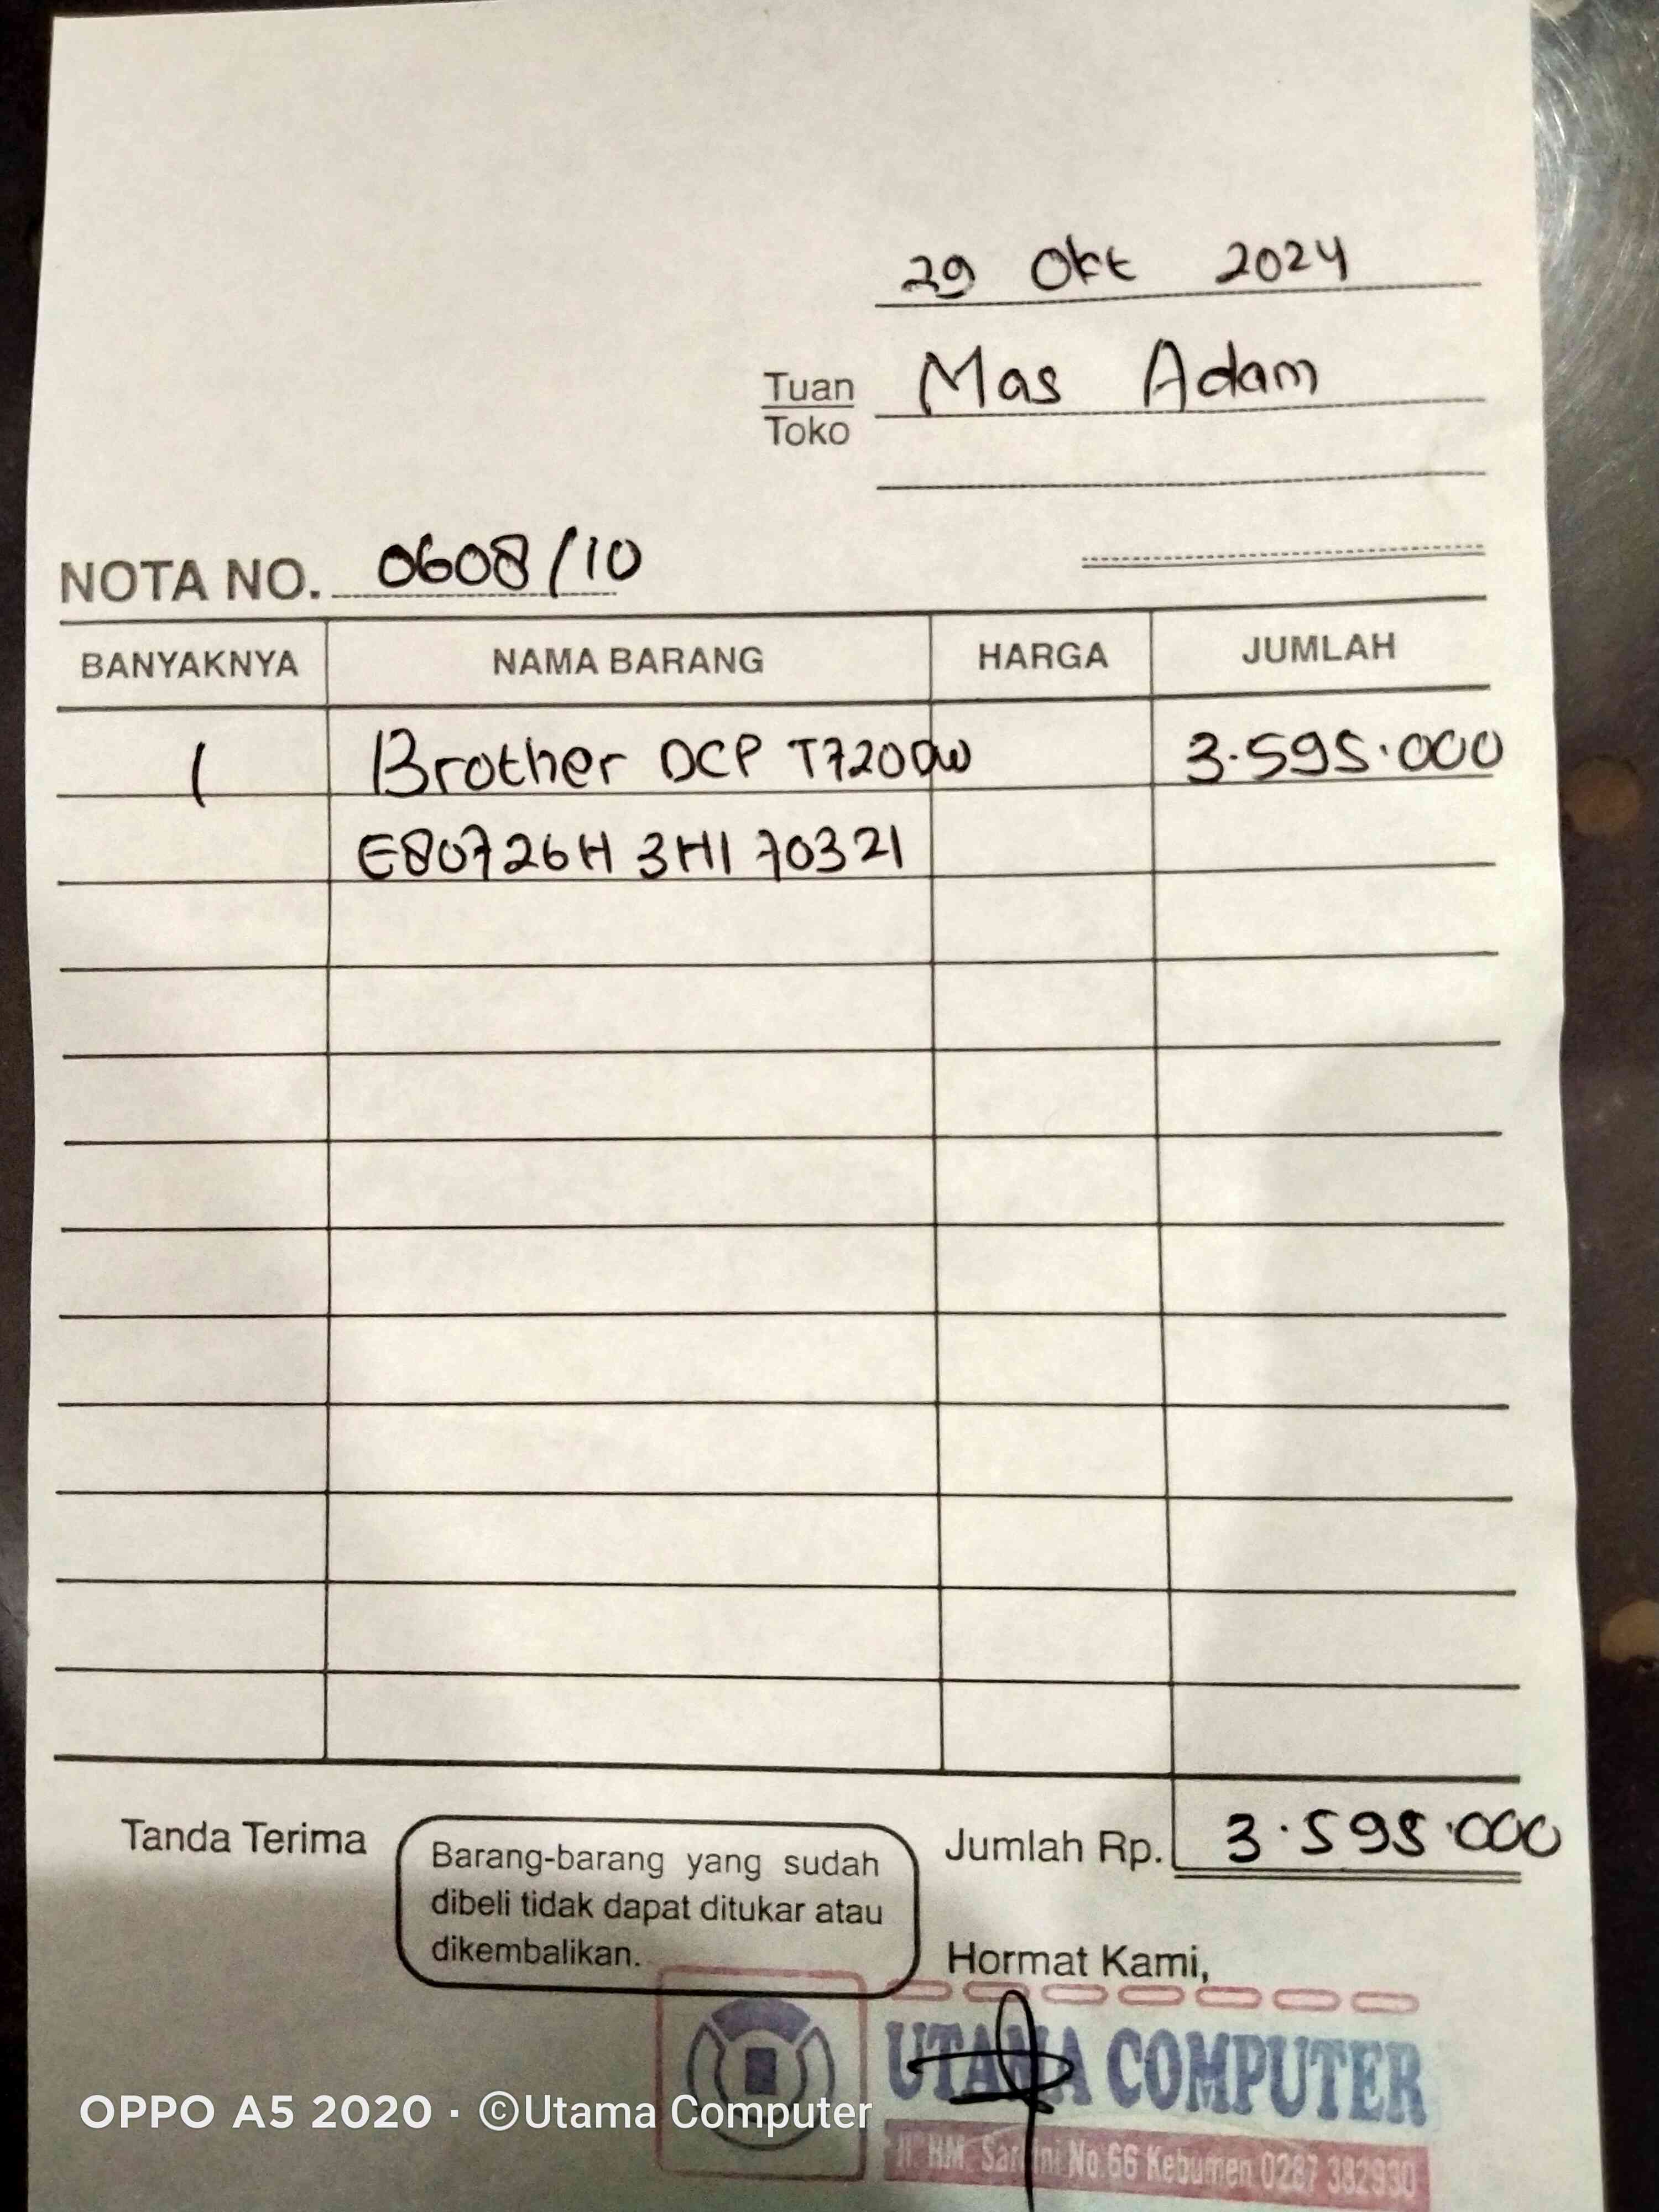 29 Okt 2024
Tuan Mas Adam
Toko
NOTA NO. 0608/10
BANYAKNYA NAMA BARANG HARGA JUMLAH
1 Brother DCP T720DW 3.595.000
E80726H3H170321
Tanda Terima
Barang-barang yang sudah
dibeli tidak dapat ditukar atau
dikembalikan.
Jumlah Rp. 3.595.000
Hormat Kami,
UTAMA COMPUTER
Jl. HM. Sarbini No.66 Kebumen 0287 382930
OPPO A5 2020 · ©Utama Computer